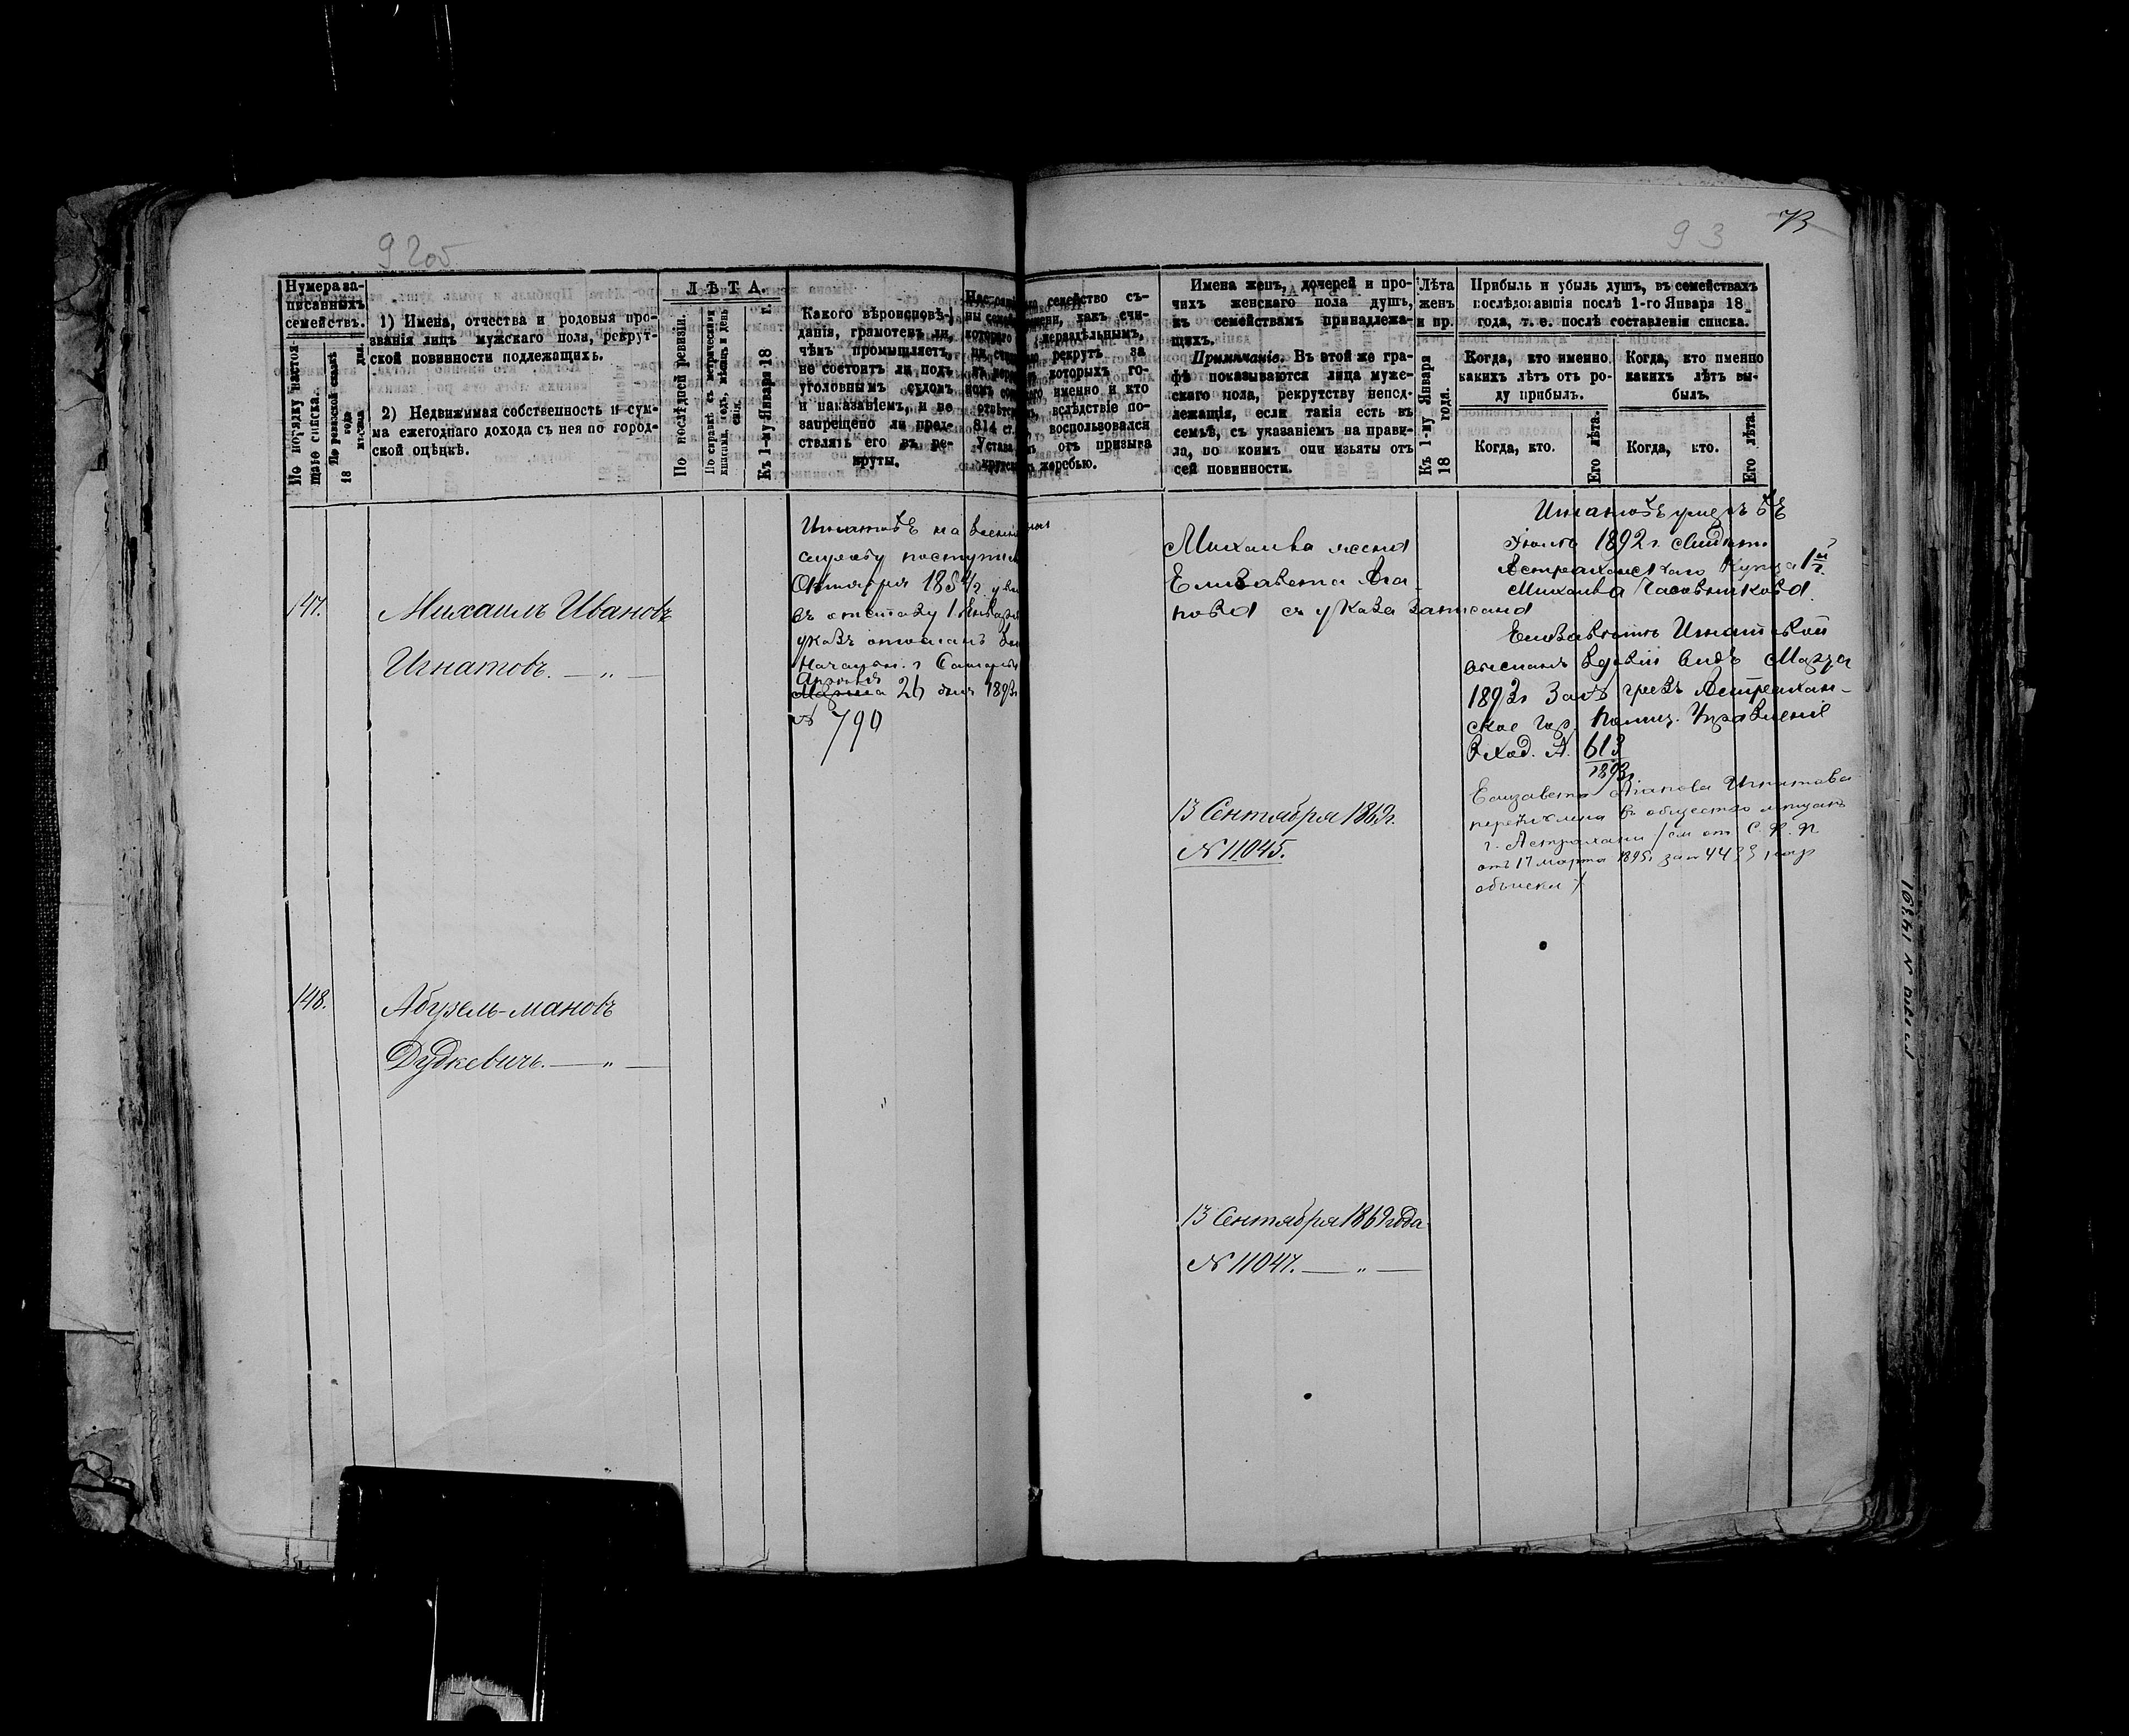 92об
93
73
Нумера за-
писанныхъ
семействъ.
По порядку настоя-
щаго списка.
По ревизской сказкѣ
18 года
1) Имена, отчества и родовыя про-
званія лицъ мужскаго пола, рекрут-
ской повинности подлежащихъ.
2) Недвижимая собственность и сум-
ма ежегоднаго дохода съ нея по город-
ской оцѣнкѣ.
ЛѢТА.
По послѣдней ревизіи.
По справкѣ съ метрическими
книгами, годъ, мѣсяцъ и день
Къ 1-му Января 18 г.
Какого вѣроисповѣ-
данія, грамотенъ ли,
чѣмъ промышляетъ,
не состоитъ ли подъ
уголовнымъ судомъ
и наказаніемъ, и не
запрещено ли пред-
ставлять его въ ре-
круты.
семейство съ-
какъ счи-
нераздѣльнымъ,
рекрутъ за
которыхъ го-
именно и кто
вслѣдствіе по-
814 ст. воспользовался
Устава отъ призыва
жеребью.
Имена женъ, дочерей и про-
чихъ женскаго пола душъ,
къ семействамъ принадлежа-
щихъ.
Примѣчаніе. Въ этой же гра-
фѣ показываются лица муже-
скаго пола, рекрутству непод-
лежащія, если такія есть въ
семьѣ, съ указаніемъ на прави-
ла, по коимъ они изъяты отъ
сей повинности.
Лѣта
женъ
и пр.
Къ 1-му Января
18 года.
Прибыль и убыль душъ, въ семействахъ
послѣдовавшія послѣ 1-го Января 18
года, т. е. послѣ составленія списка.
Когда, кто именно
какихъ лѣтъ отъ ро-
ду прибылъ.
Когда, кто именно
какихъ лѣтъ вы-
былъ.
Когда, кто.
Его лѣта.
Когда, кто.
Его лѣта.
147.
Михаилъ Ивановъ
Игнатовъ. — „ —
Игнатовъ на военную
службу поступилъ
Октября
въ отставку 1 Января
указъ отосланъ
Начальн. г
Апрѣля
Марта 26 дня 1893
№ 790
Михаила жена
Елизавета Ага
пова съ указа записана
13 Сентября 1869г.
№ 11045.
Игнатовъ умеръ въ
1892 г.
Астраханскаго купца 1й г.
Михаила Часовникова.
Елизаветѣ Игнатовой
высланъ вдовій видъ Марта
1893г За № чрезъ Астрахан-
ское Гор. Полиц. Управленіе
Вход. № 613
1893г.
Елизавета Агапова Игнатова
перечислена въ общество мѣщанъ
г. Астрахани /см от С. К. П
отъ 17 марта 1895г за №
148.
Абузель-мановъ
Дудкевичъ. — „ —
13 Сентября 1869 года
№ 11047. — „ —